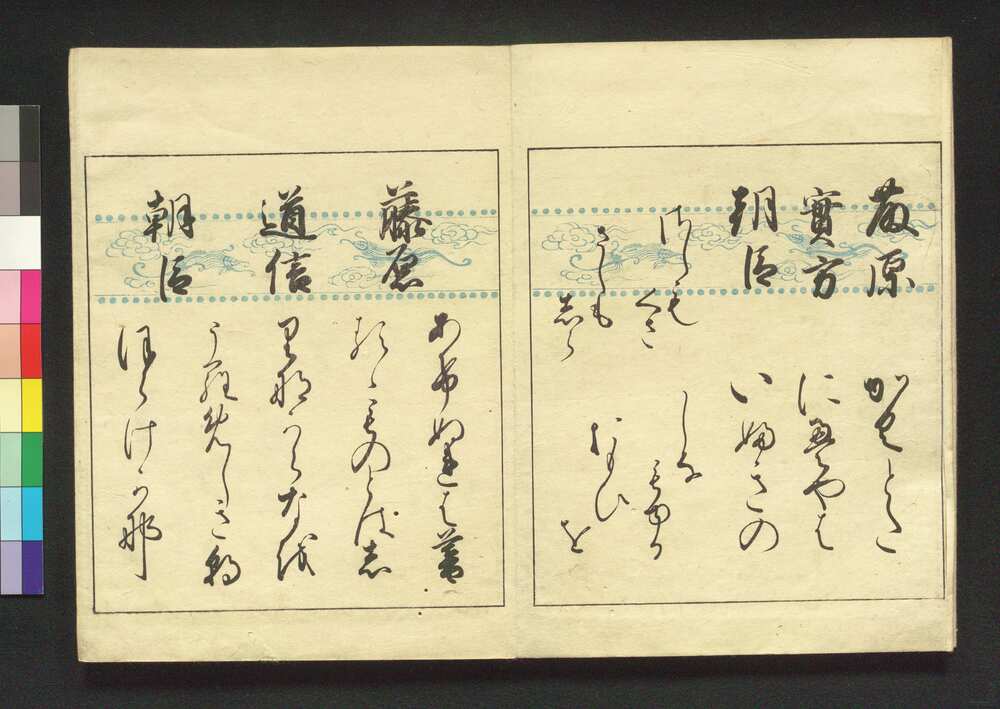 藤原
實方
朝臣
かくとた
にえやは
いふきの
さしも
くさ
さしも
しら
しな
もゆる
おもひ
を
藤原
道信
朝臣
あけぬれは暮
るゝものとはし
りなからなを
うらめしき朝
ほらけかな